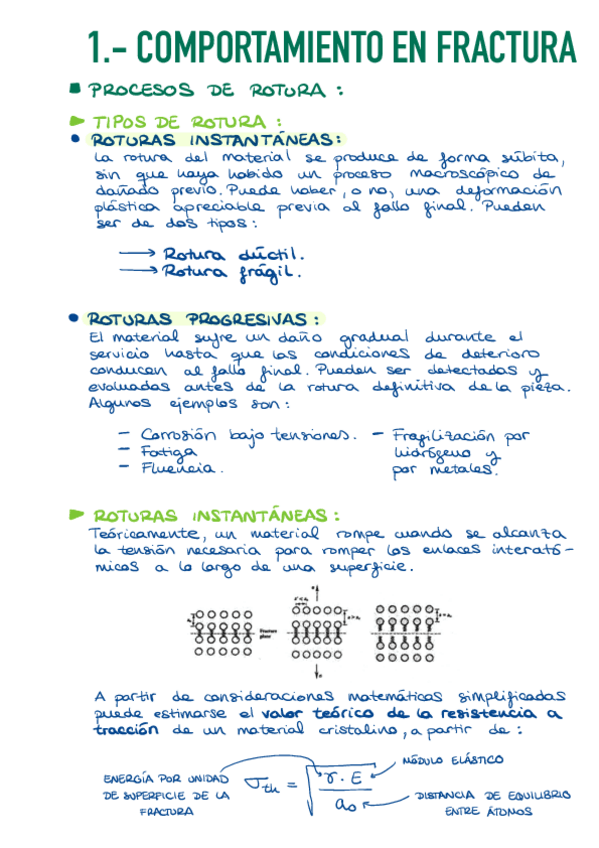 1.- COMPORTAMIENTO EN FRACTURA
PROCESOS DE ROTURA :
TIPOS DE ROTURA :
ROTURAS INSTANTÁNEAS:
La rotura del material se produce de forma súbita,
sin que haya habido un proceso macroscópico de
dañado previo. Puede haber, o no, una deformación
plástica apreciable previa al fallo final. Pueden
ser de dos tipos:
→ Rotura dúctil.
→ Rotura frágil.
ROTURAS PROGRESIVAS :
El material sufre un daño gradual durante el
servicio hasta que las condiciones de deterioro
conducen al fallo final. Pueden ser detectadas y
evaluadas antes de la rotura definitiva de la pieza.
Algunos ejemplos son:
- Corrosión bajo tensiones. - Fragilización por
- Fatiga hidrógeno y
- Fluencia. por metales.
ROTURAS INSTANTÁNEAS :
Teóricamente, un material rompe cuando se alcanza
la tensión necesaria para romper los enlaces interató-
micos a lo largo de una superficie.
Fracture
plane
A partir de consideraciones matemáticas simplificadas
puede estimarse el valor teórico de la resistencia a
tracción de un material cristalino, a partir de :
MÓDULO ELÁSTICO
ENERGÍA POR UNIDAD
DE SUPERFICIE DE LA
FRACTURA
σth = √(γ · E / a₀)
DISTANCIA DE EQUILIBRIO
ENTRE ÁTOMOS